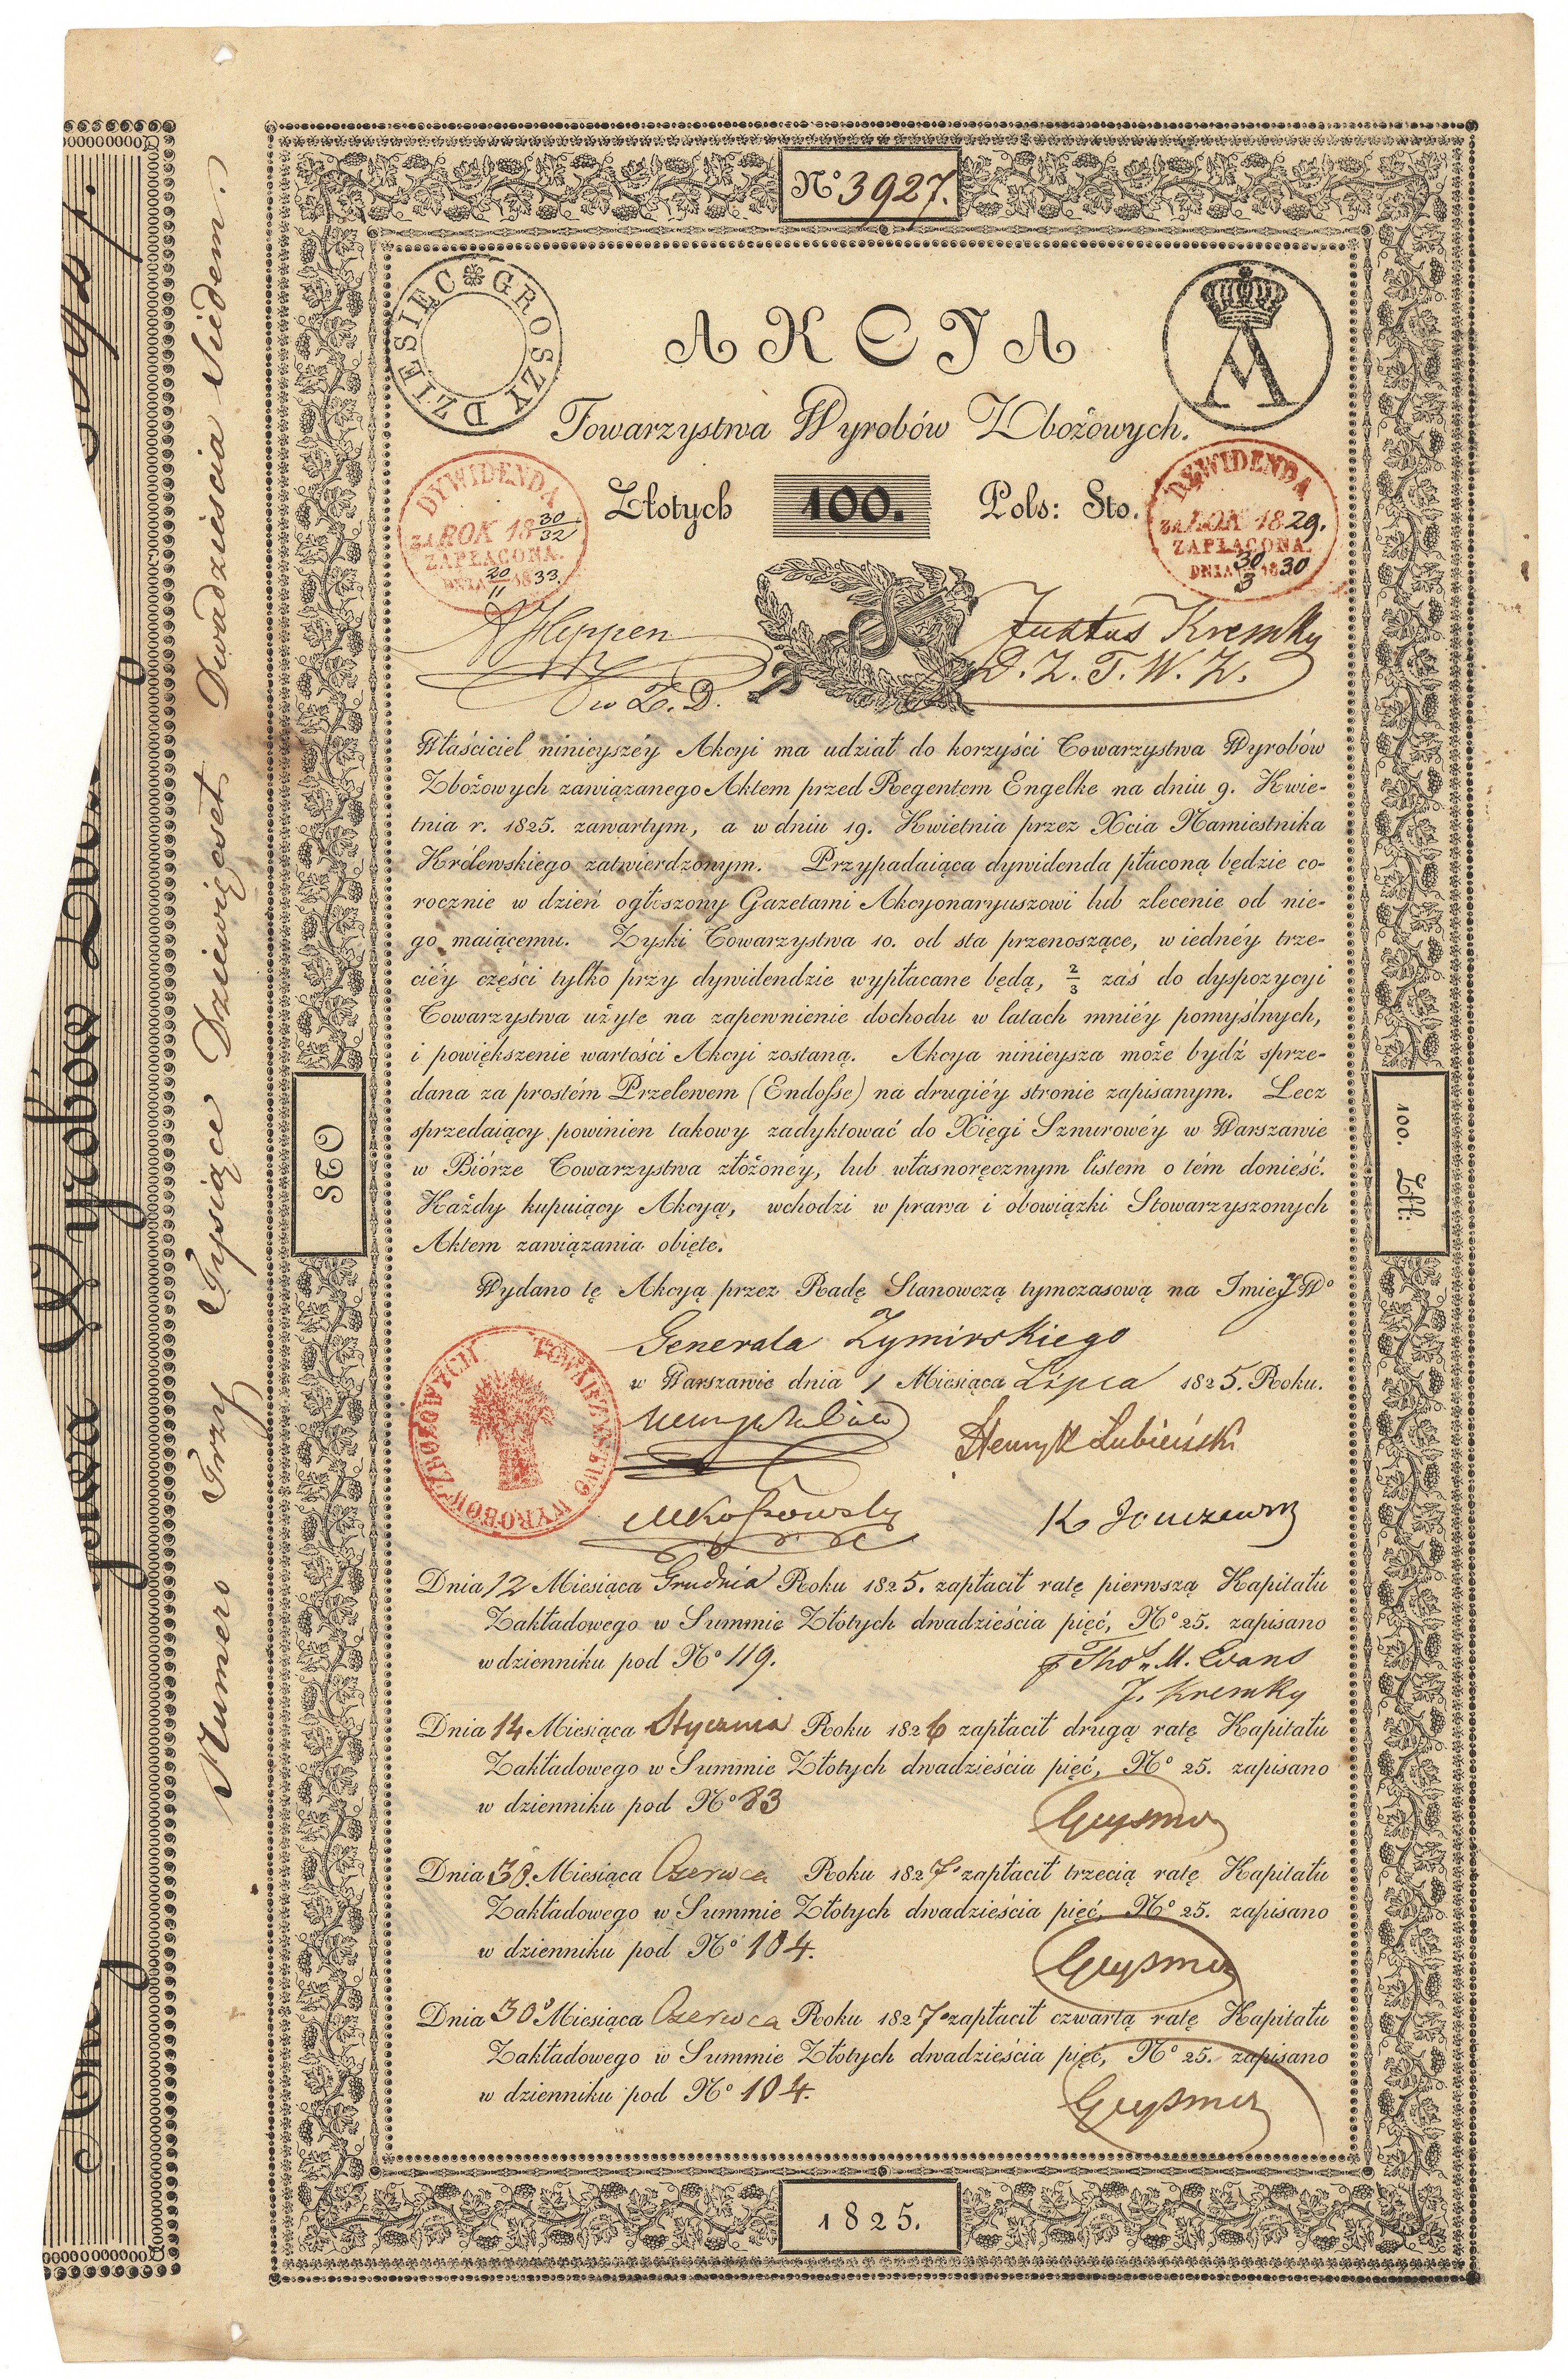 No 3927.
GROSZY DZIESIĘC
A
AKCYA
Towarzystwa Wyrobów Zbożowych.
Złotych 100. Pols: Sto.
DYWIDENDA
za ROK 18 30/32
ZAPŁACONA.
DNIA 20/11 1833.
DYWIDENDA
za ROK 1829.
ZAPŁACONA.
DNIA 30/3 1830
Heppen
w Z. D.
Justus Kremky
D. Z. T. W. Z.
Właściciel ninieyszéy Akcyi ma udział do korzyści Towarzystwa Wyrobów
Zbożowych zawiązanego Aktem przed Regentem Engelke na dniu 9. Kwie-
tnia r. 1825. zawartym, a w dniu 19. Kwietnia przez Xcia Namiestnika
Królewskiego zatwierdzonym. Przypadaiąca dywidenda płaconą będzie co-
rocznie w dzień ogłoszony Gazetami Akcyonaryuszowi lub zlecenie od nie-
go maiącemu. Zyski Towarzystwa 10. od sta przenoszące, w iednéy trze-
ciéy części tylko przy dywidendzie wypłacane będą, 2/3 zaś do dyspozycyi
Towarzystwa użyte na zapewnienie dochodu w latach mniéy pomyślnych,
i powiększenie wartości Akcyi zostaną. Akcya ninieysza może bydź sprze-
dana za prostém Przelewem (Endosse) na drugiéy stronie zapisanym. Lecz
sprzedaiący powinien takowy zadyktować do Xięgi Sznurowéy w Warszawie
w Biórze Towarzystwa złóżoney, lub własnoręcznym listem o tém donieść.
Każdy kupuiący Akcyą, wchodzi w prawa i obowiązki Stowarzyszonych
Aktem zawiązania obięte.
Wydano tę Akcyą przez Radę Stanowczą tymczasową na Imie JWo
Generała Zymirskiego
w Warszawie dnia 1 Miesiąca Lipca 1825. Roku.
TOWARZYSTWO WYROBOW ZBOZOWYCH
Henryk Łubieński
Dnia 12 Miesiąca Grudnia Roku 1825. zapłacił ratę pierwszą Kapitału
Zakładowego w Summie Złotych dwadzieścia pięć, No 25. zapisano
w dzienniku pod No 119.
Thos M. Evans
J. Kremky
Dnia 14 Miesiąca Stycznia Roku 1826 zapłacił drugą ratę Kapitału
Zakładowego w Summie Złotych dwadzieścia pięć, No 25. zapisano
w dzienniku pod No 83
Dnia 30. Miesiąca Czerwca Roku 1827. zapłacił trzecią ratę Kapitału
Zakładowego w Summie Złotych dwadzieścia pięć, No 25. zapisano
w dzienniku pod No 104.
Dnia 30 Miesiąca Czerwca Roku 1827. zapłacił czwartą ratę Kapitału
Zakładowego w Summie Złotych dwadzieścia pięć, No 25. zapisano
w dzienniku pod No 104.
1825.
STO
100. Złł:
Numero Trzy Tysiące Dziewięćset Dwadzieścia Siedem.